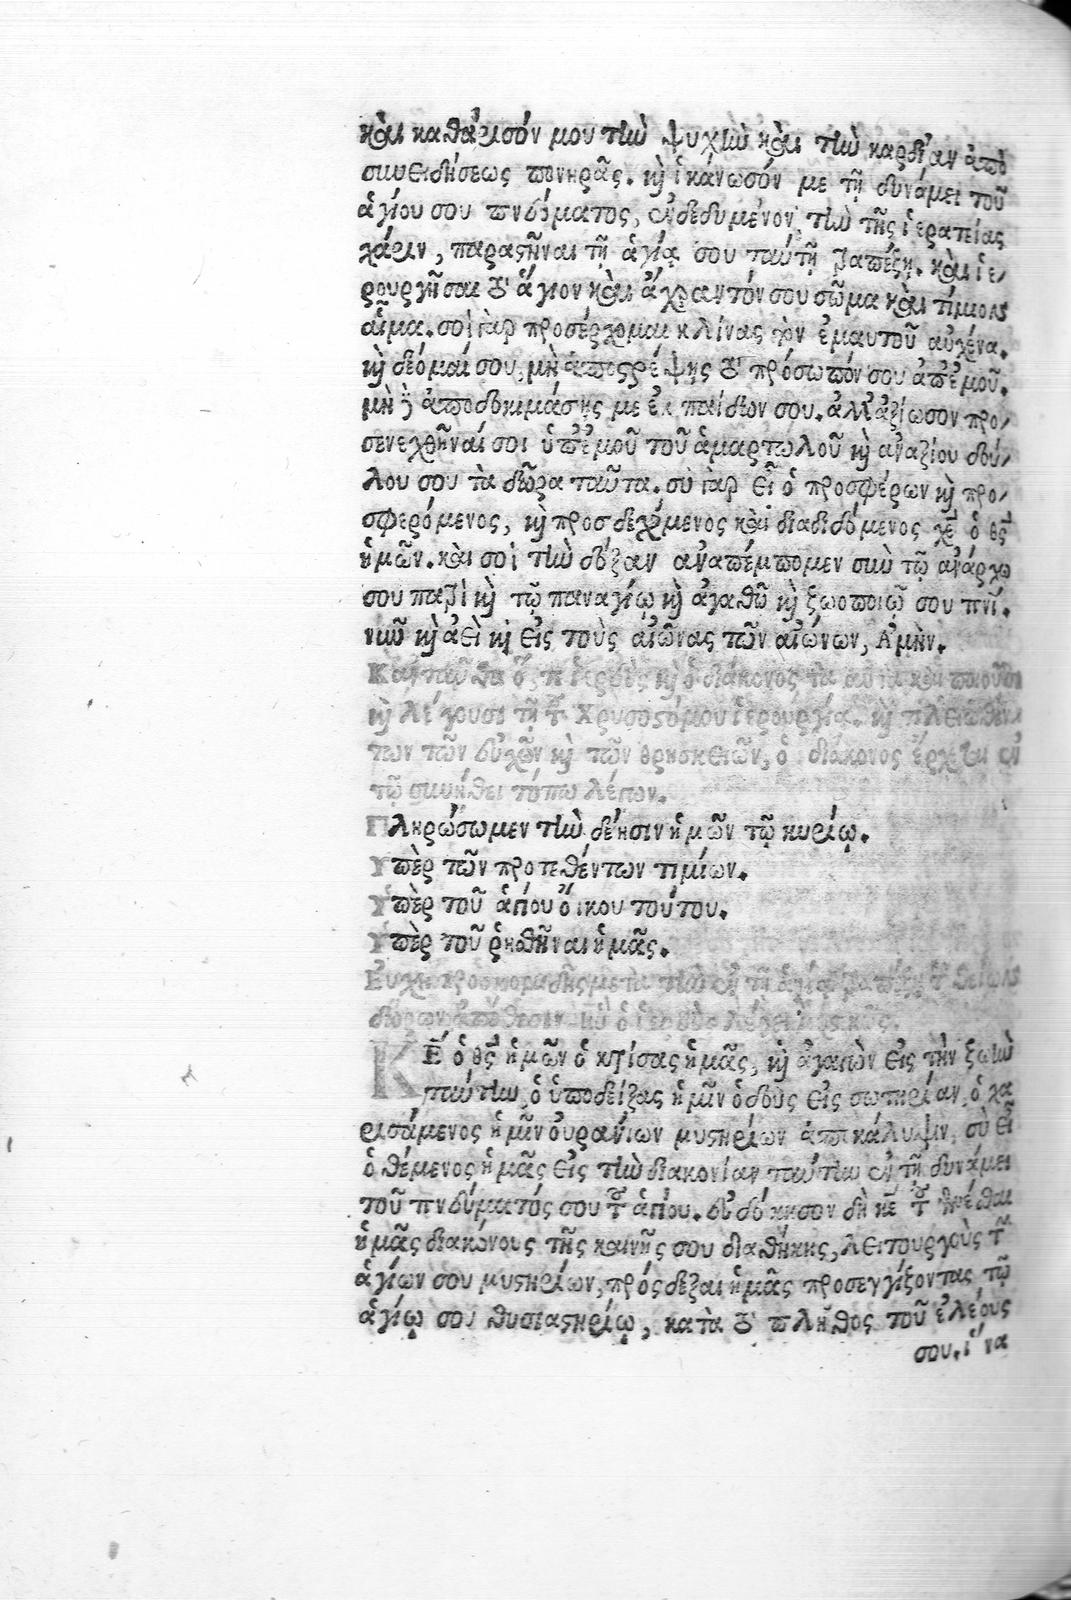 καὶ καθάρισόν μου τὴν ψυχὴν καὶ τὴν καρδίαν ἀπὸ
συνειδήσεως πονηρᾶς. καὶ ἱκάνωσόν με τῇ δυνάμει τοῦ
ἁγίου σου πνεύματος, ἐνδεδυμένον τὴν τῆς ἱερατείας
χάριν, παραστῆναι τῇ ἁγίᾳ σου ταύτῃ τραπέζῃ. καὶ ἱε-
ρουργῆσαι τὸ ἅγιον καὶ ἄχραντόν σου σῶμα καὶ τίμιον
αἷμα. σοὶ γὰρ προσέρχομαι κλίνας τὸν ἐμαυτοῦ αὐχένα.
καὶ δέομαί σου, μὴ ἀποστρέψῃς τὸ πρόσωπόν σου ἀπ' ἐμοῦ.
μὴ δὲ ἀποδοκιμάσῃς με ἐκ παίδων σου. ἀλλ' ἀξίωσον προ-
σενεχθῆναί σοι ὑπ' ἐμοῦ τοῦ ἁμαρτωλοῦ καὶ ἀναξίου δού-
λου σου τὰ δῶρα ταῦτα. σὺ γὰρ εἶ ὁ προσφέρων καὶ προ-
σφερόμενος, καὶ προσδεχόμενος καὶ διαδιδόμενος χε ὁ θς
ἡμῶν. καὶ σοὶ τὴν δόξαν ἀναπέμπομεν σὺν τῷ ἀνάρχῳ
σου πατρὶ καὶ τῷ παναγίῳ καὶ ἀγαθῷ καὶ ζωοποιῷ σου πνι.
νῦν καὶ ἀεὶ καὶ εἰς τοὺς αἰῶνας τῶν αἰώνων, Ἀμήν.
ὅ, τε ἱερεὺς καὶ ὁ διάκονος τὰ
καὶ λέγουσι τῇ τοῦ Χρυσοστόμου ἱερουργίᾳ. καὶ
των τῶν εὐχῶν καὶ τῶν ὁ διάκονος ἔρχεται ἐν
τῷ συνήθει τόπῳ λέγων.
Πληρώσωμεν τὴν δέησιν ἡμῶν τῷ κυρίῳ.
Ὑπὲρ τῶν προτεθέντων τιμίων.
Ὑπὲρ τοῦ ἁγίου οἴκου τούτου.
Ὑπὲρ τοῦ ῥυσθῆναι ἡμᾶς.
Εὐχὴ προσκομιδῆς μετὰ τὴν ἐν τῇ ἁγίᾳ τραπέζῃ τῶν θείων
δώρων ἀπόθεσιν
Κε ὁ θς ἡμῶν ὁ κτίσας ἡμᾶς, καὶ ἀγαγὼν εἰς τὴν ζωὴν
ταύτην, ὁ ὑποδείξας ἡμῖν ὁδοὺς εἰς σωτηρίαν, ὁ χα
ρισάμενος ἡμῖν οὐρανίων μυστηρίων ἀποκάλυψιν, σὺ εἶ
ὁ θέμενος ἡμᾶς εἰς τὴν διακονίαν ταύτην ἐν τῇ δυνάμει
τοῦ πνεύματός σου τοῦ ἁγίου. εὐδόκησον δὴ κε τοῦ γενέσθαι
ἡμᾶς διακόνους τῆς καινῆς σου διαθήκης, λειτουργοὺς τῶν
ἁγίων σου μυστηρίων, πρόσδεξαι ἡμᾶς προσεγγίζοντας τῷ
ἁγίῳ σου θυσιαστηρίῳ, κατὰ τὸ πλῆθος τοῦ ἐλέους
σου. ἵνα